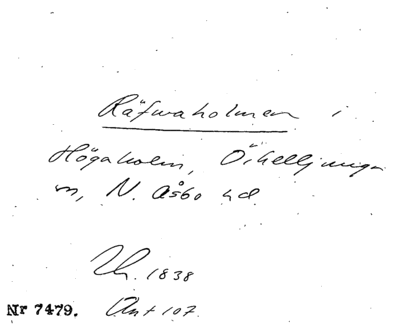 Räfwaholmen i
Högaholm, Örkelljunga
sn, N. Åsbo hd
1838
Nr 7479. Ant 107.